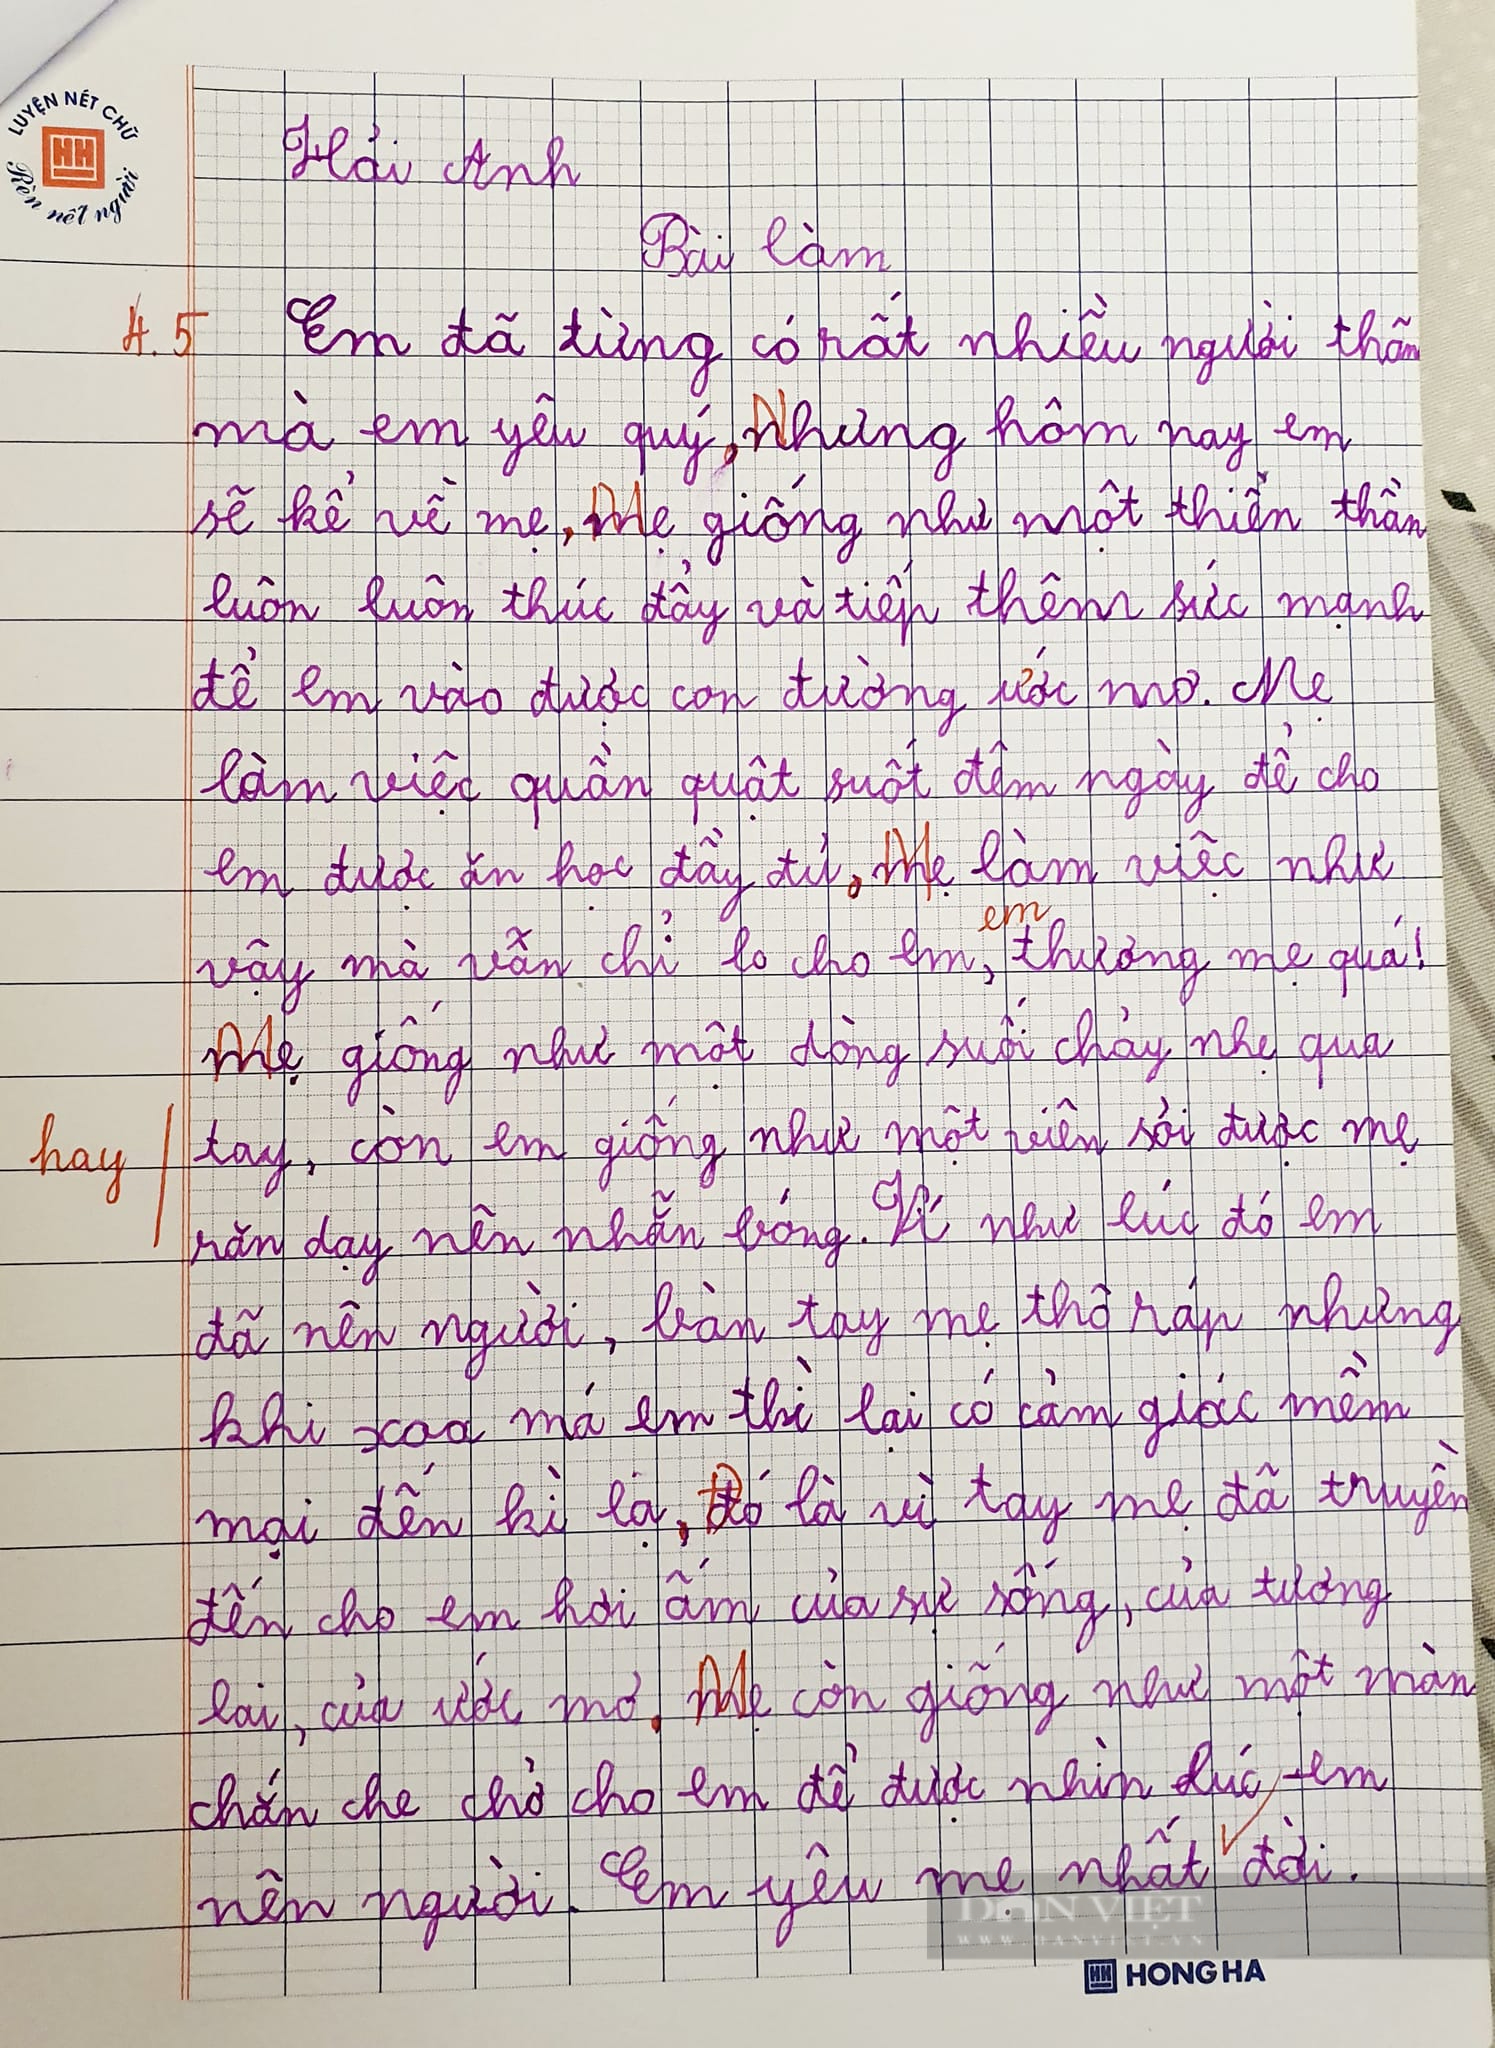 LUYỆN NÉT CHỮ
HH
Rèn nết người
Hải Anh
Bài làm
4.5
Em đã từng có rất nhiều người thân
mà em yêu quý, Nhưng hôm nay em
sẽ kể về mẹ, Mẹ giống như một thiên thần
luôn luôn thúc đẩy và tiếp thêm sức mạnh
để em vào được con đường ước mơ. Mẹ
làm việc quần quật suốt đêm ngày để cho
em được ăn học đầy đủ, Mẹ làm việc như
em
vậy mà vẫn chỉ lo cho em, thương mẹ quá!
Mẹ giống như một dòng suối chảy nhẹ qua
hay
tay, còn em giống như một viên sỏi được mẹ
răn dạy nên nhẵn bóng. Ví như lúc đó em
đã nên người, bàn tay mẹ thô ráp nhưng
khi xoa má em thì lại có cảm giác mềm
mại đến kì lạ, Đó là vì tay mẹ đã truyền
đến cho em hơi ấm của sự sống, của tương
lai, của ước mơ. Mẹ còn giống như một màn
chắn che chở cho em để được nhìn lúc em
nên người. Em yêu mẹ nhất đời.
DÂN VIỆT
WWW.DANVIET.VN
HH HONG HA